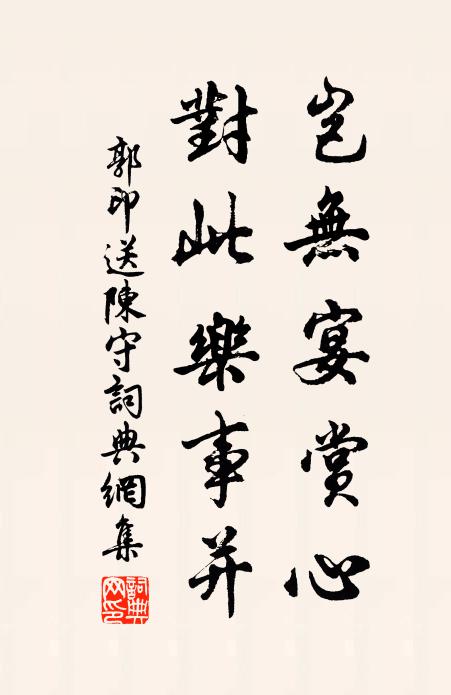 豈無宴賞心
對此樂事并
郭印送陳守詞典網集
詞典網印